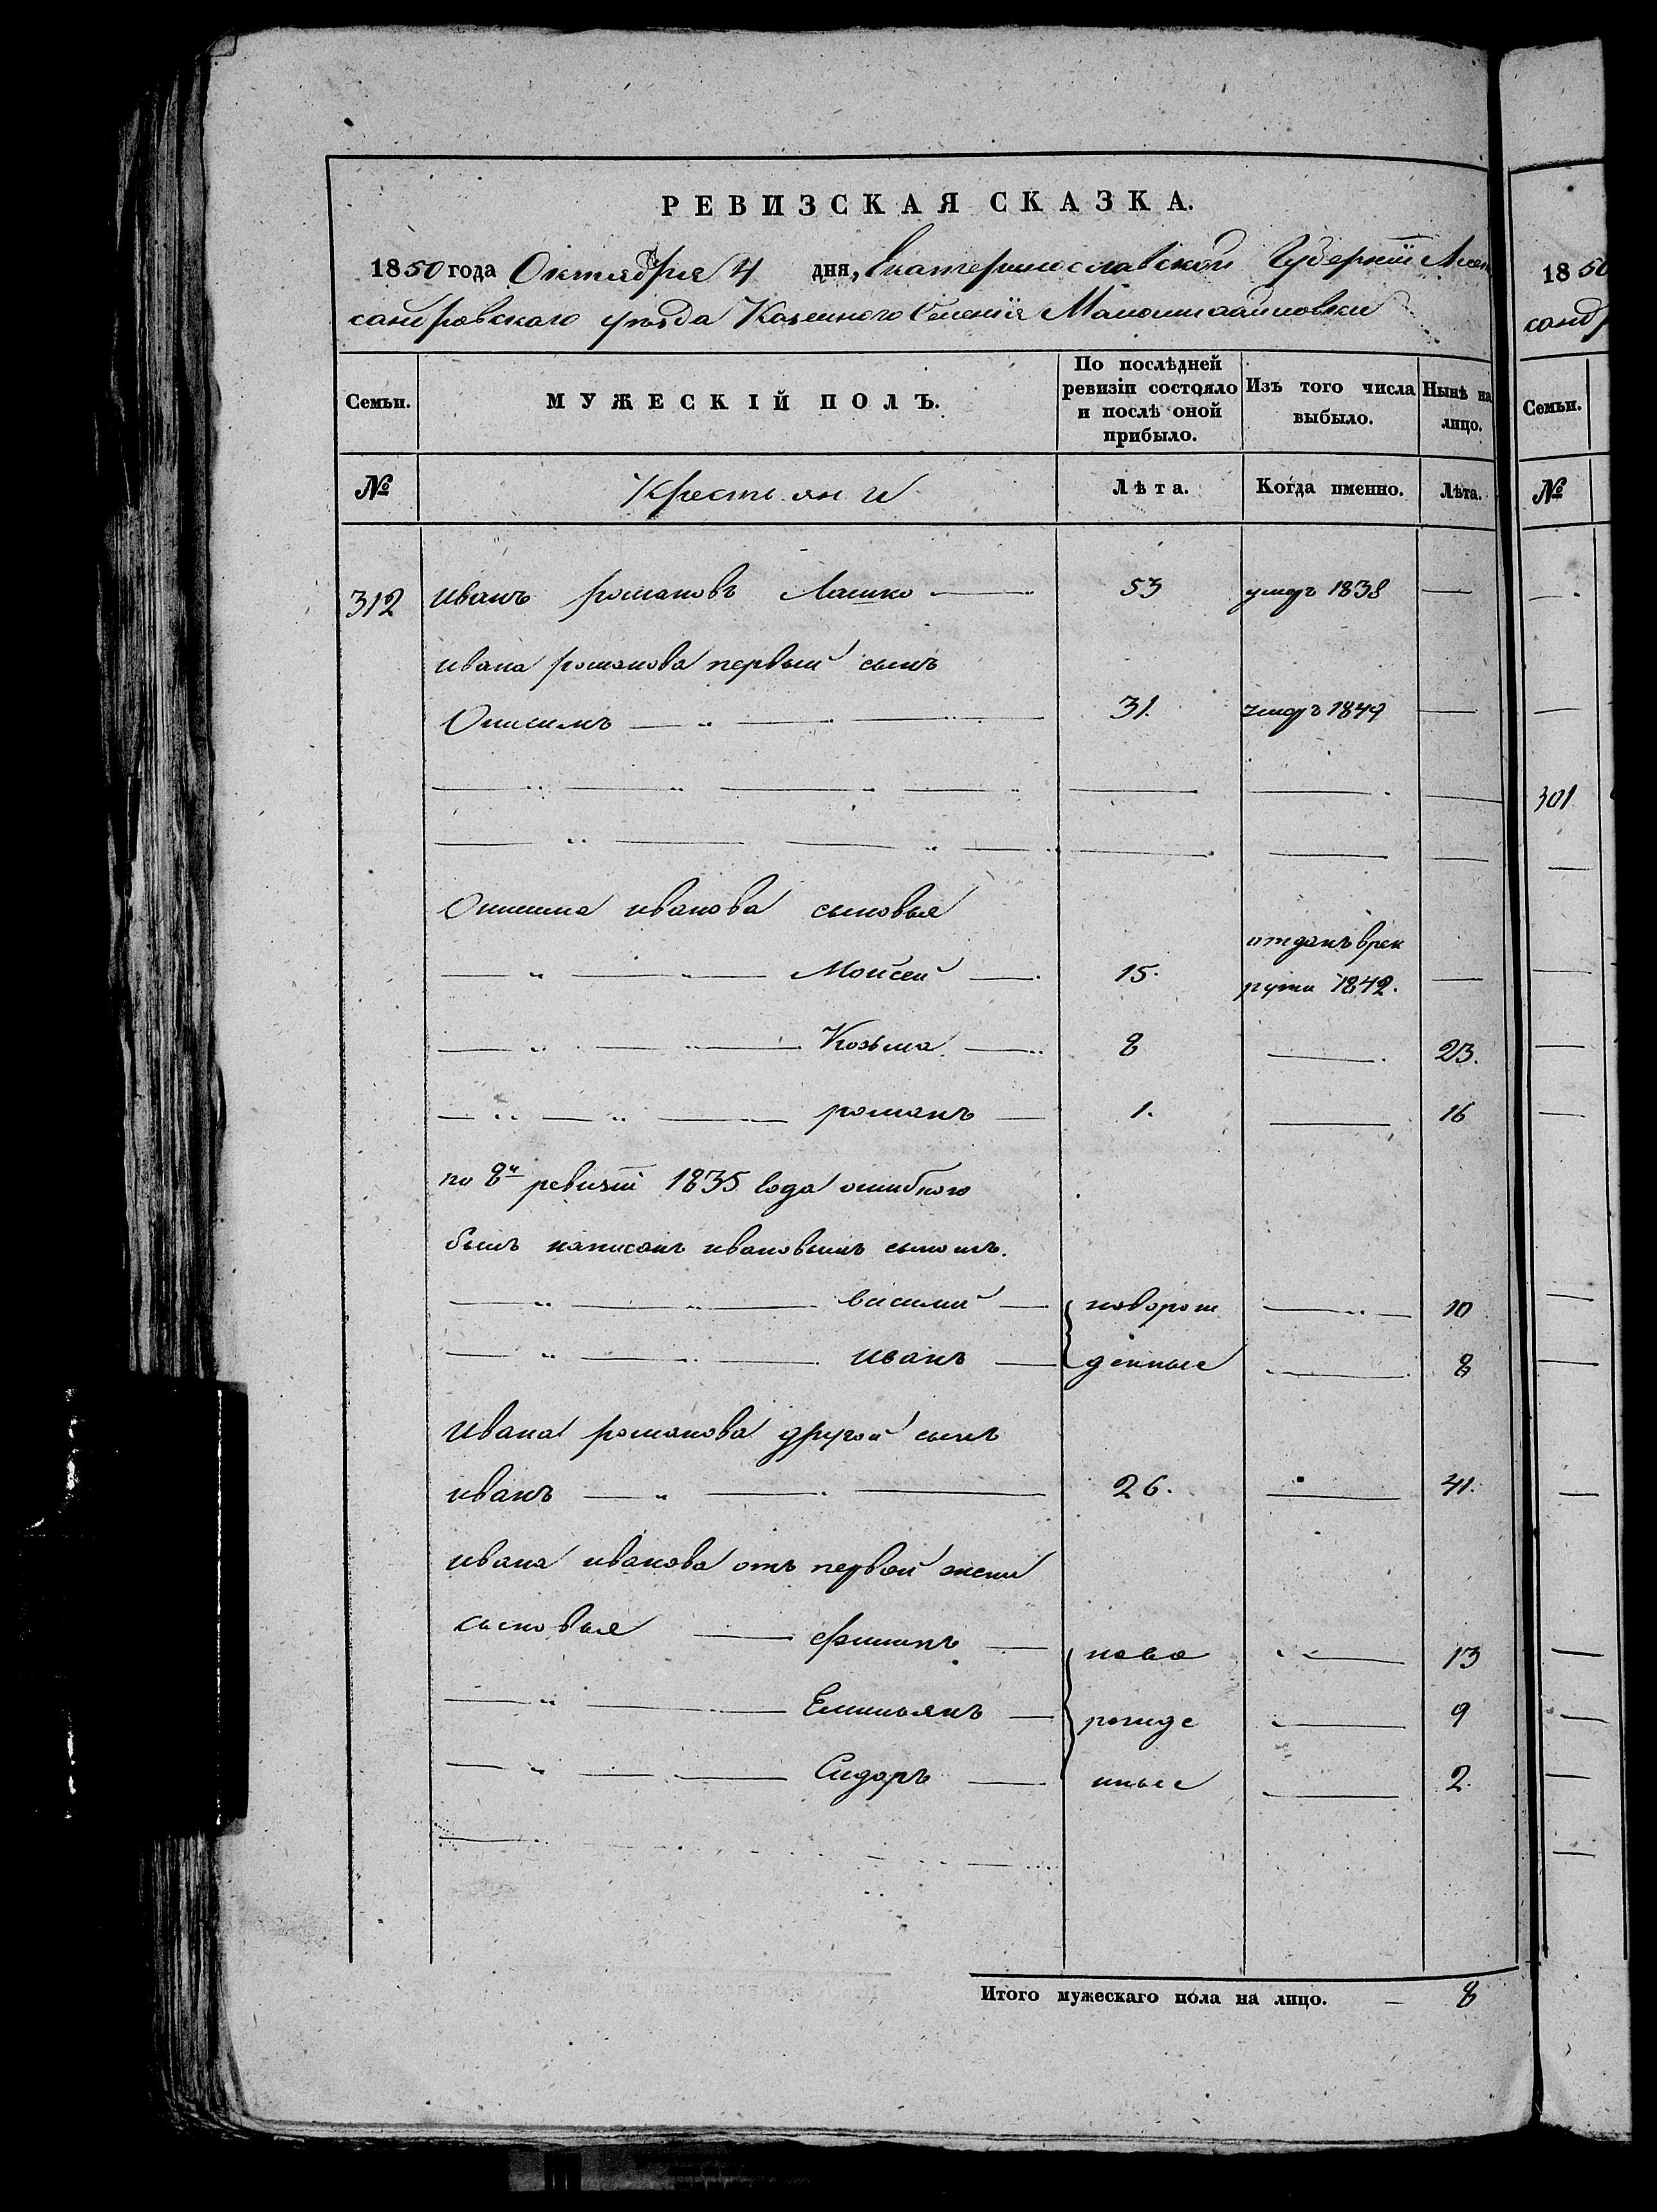 РЕВИЗСКАЯ СКАЗКА.
1850 года Октября 4 дня, Екатеринославской Губерніи Алек
сандровскаго уѣзда Казенного Селенія
Семьи.
МУЖЕСКІЙ ПОЛЪ.
По послѣдней ревизіи состояло и послѣ оной прибыло.
Изъ того числа выбыло.
Нынѣ на лицо.
№
Крестьяни
Лѣта.
Когда именно.
Лѣта.
312 иванъ романовъ Лашко 53 умеръ 1838
ивана романова первый сынъ
Онисимъ 31. умеръ 1849
Онисима иванова сыновья
Мойсей 15. отданъ врек
рути 1842.
Козьма 8 23.
романъ 1. 16
по 8й ревизіи 1835 года ошибкою
былъ написанъ ивановымъ сыномъ.
новорож 10
иванъ денные 8
Ивана романова другой сынъ
иванъ 26. 41.
ивана иванова отъ первой жени
сыновья филипъ ново 13
Емильянъ рожде 9
Сидоръ нные 2.
Итого мужескаго пола на лицо. 8
1850
санд
Семьи.
№
301